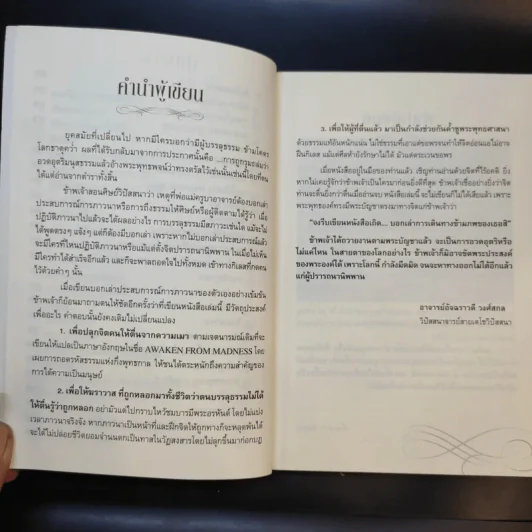 คำนำผู้เขียน
ยุคสมัยที่เปลี่ยนไป หากมีใครบอกว่ามีผู้บรรลุธรรม ข้ามโคตร
โลกธาตุคว่ำ ผลที่ได้รับกลับมาจากการประกาศนั้นคือ ...การถูกรุมถล่มว่า
อวดอุตริมนุสธรรมแล้วอ้างพระพุทธพจน์ว่าทรงตรัสไว้เช่นนั้นเช่นนี้โดยที่ตน
ได้แต่อ่านจากตำราทั้งสิ้น
ข้าพเจ้าสอนศิษย์วิปัสสนาว่า เหตุที่พ่อแม่ครูบาอาจารย์ต้องบอกเล่า
ประสบการณ์การภาวนาหรือการถึงธรรมให้ศิษย์หรือผู้ติดตามได้รู้ว่า เมื่อ
ปฏิบัติภาวนาไปแล้วจะได้ผลอย่างไร การบรรลุธรรมมีสภาวะเช่นใด แม้จะไม่
ได้พูดตรงๆ แจ้งๆ แต่ก็ต้องมีบอกเล่า เพราะหากไม่บอกเล่าประสบการณ์แล้ว
จะมีใครที่ไหนปฏิบัติภาวนาหรือแม้แต่ตั้งจิตปรารถนานิพพาน ในเมื่อไม่เห็น
มีใครทำได้สำเร็จอีกแล้ว และก็จะพาลถอดใจไปทั้งหมด เช้าทางกิเลสที่กดคน
ไว้ด้วยคำๆ นั้น
เมื่อเขียนบอกเล่าประสบการณ์การภาวนาของตัวเองอย่างเข้มข้น
ข้าพเจ้าก็ย้อนมาถามตนให้ชัดอีกครั้งว่าที่เขียนหนังสือเล่มนี้ มีวัตถุประสงค์
เพื่ออะไร คำตอบนั้นยังคงเดิมไม่เปลี่ยนแปลง
1. เพื่อปลุกจิตคนให้ตื่นจากความเมา ตามเจตนารมณ์เดิมที่จะ
เขียนให้แปลเป็นภาษาอังกฤษในชื่อ AWAKEN FROM MADNESS โดย
เผยการถอดรหัสธรรมแห่งกึ่งพุทธกาล ให้ชนได้ตระหนักถึงความสำคัญของ
การได้ความเป็นมนุษย์
2. เพื่อให้ฆราวาส ที่ถูกหลอกมาทั้งชีวิตว่าตนบรรลุธรรมไม่ได้
ให้ตื่นรู้ว่าถูกหลอก อย่ามัวแต่ไปกราบไหว้ชมบารมีพระอรหันต์ โดยไม่แบ่ง
เวลาภาวนาจริงจัง หากภาวนาเป็นหน้าที่และฝึกจิตให้ถูกทางก็จะหลุดพ้นได้
จะได้ไม่ปล่อยชีวิตยอมจำนนตกเป็นทาสในวัฏสงสารโดยไม่ลุกขึ้นมาก่อกบฏ
3. เพื่อให้ผู้ที่ตื่นแล้ว มาเป็นกำลังช่วยกันค้ำชูพระพุทธศาสนา
ด้วยธรรมแท้อันหนักแน่น ไม่ใช่ธรรมที่เอาแต่ขบพรรณาให้จิตอ่อนแอไม่อาจ
ฝืนกิเลส แม้แต่ศีลห้ายังรักษาไม่ได้ มัวแต่ตระเวนขอพร
เมื่อหนังสืออยู่ในมือของท่านแล้ว เชิญท่านอ่านด้วยจิตที่ไร้อคติ ยิ่ง
หากไม่เคยรู้จักว่าข้าพเจ้าเป็นใครมาก่อนยิ่งดีที่สุด ข้าพเจ้าเชื่ออย่างยิ่งว่าจิต
ท่านจะตื่นยิ่งกว่าตื่นเมื่ออ่านจบ หนังสือเล่มนี้ จะไม่เขียนก็ไม่ได้เสียแล้ว เพราะ
พระพุทธองค์ทรงมีพระบัญชาตรงมาทางจิตแก่ข้าพเจ้าว่า
“จงรีบเขียนหนังสือเถิด... บอกเล่าการเดินทางข้ามภพของเธอสิ”
ข้าพเจ้าได้ถวายงานตามพระบัญชาแล้ว จะเป็นการอวดอุตริหรือ
ไม่แค่ไหน ในสายตาของโลกอย่างไร ข้าพเจ้าก็มิอาจขัดพระประสงค์
ของพระองค์ได้ เพราะโลกนี้ กำลังมืดมิด จนจะหาทางออกไม่ได้อีกแล้ว
แก่ผู้ปรารถนานิพพาน
อาจารย์อัจฉราวดี วงศ์สกล
วิปัสสนาจารย์สายเตโชวิปัสสนา